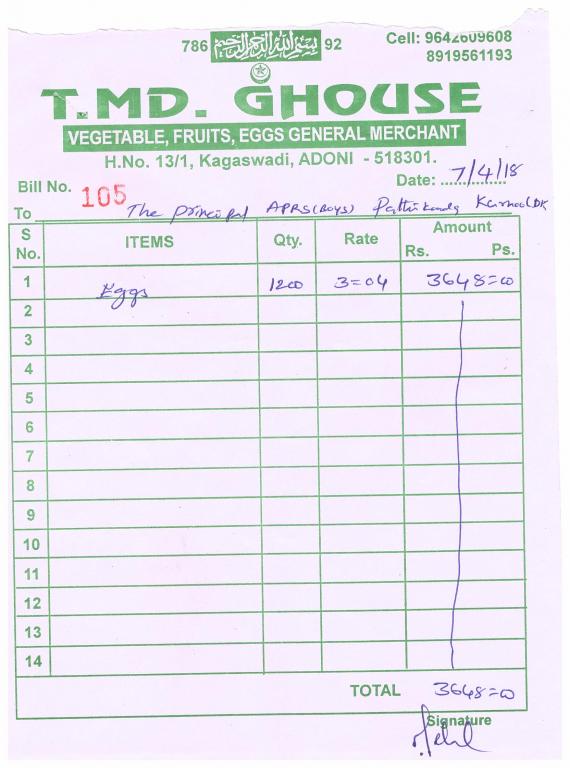 786 بسم الله الرحمن الرحيم 92
Cell: 9642609608
8919561193
T.MD. GHOUSE
VEGETABLE, FRUITS, EGGS GENERAL MERCHANT
H.No. 13/1, Kagaswadi, ADONI - 518301.
Bill No. 105 Date: 7/4/18
To The Principal APRS(Boys) Pattikonda Kurnool Dt
S No. ITEMS Qty. Rate Amount Rs. Ps.
1 Eggs 1200 3=04 3648=00
2
3
4
5
6
7
8
9
10
11
12
13
14
TOTAL 3648=00
Signature